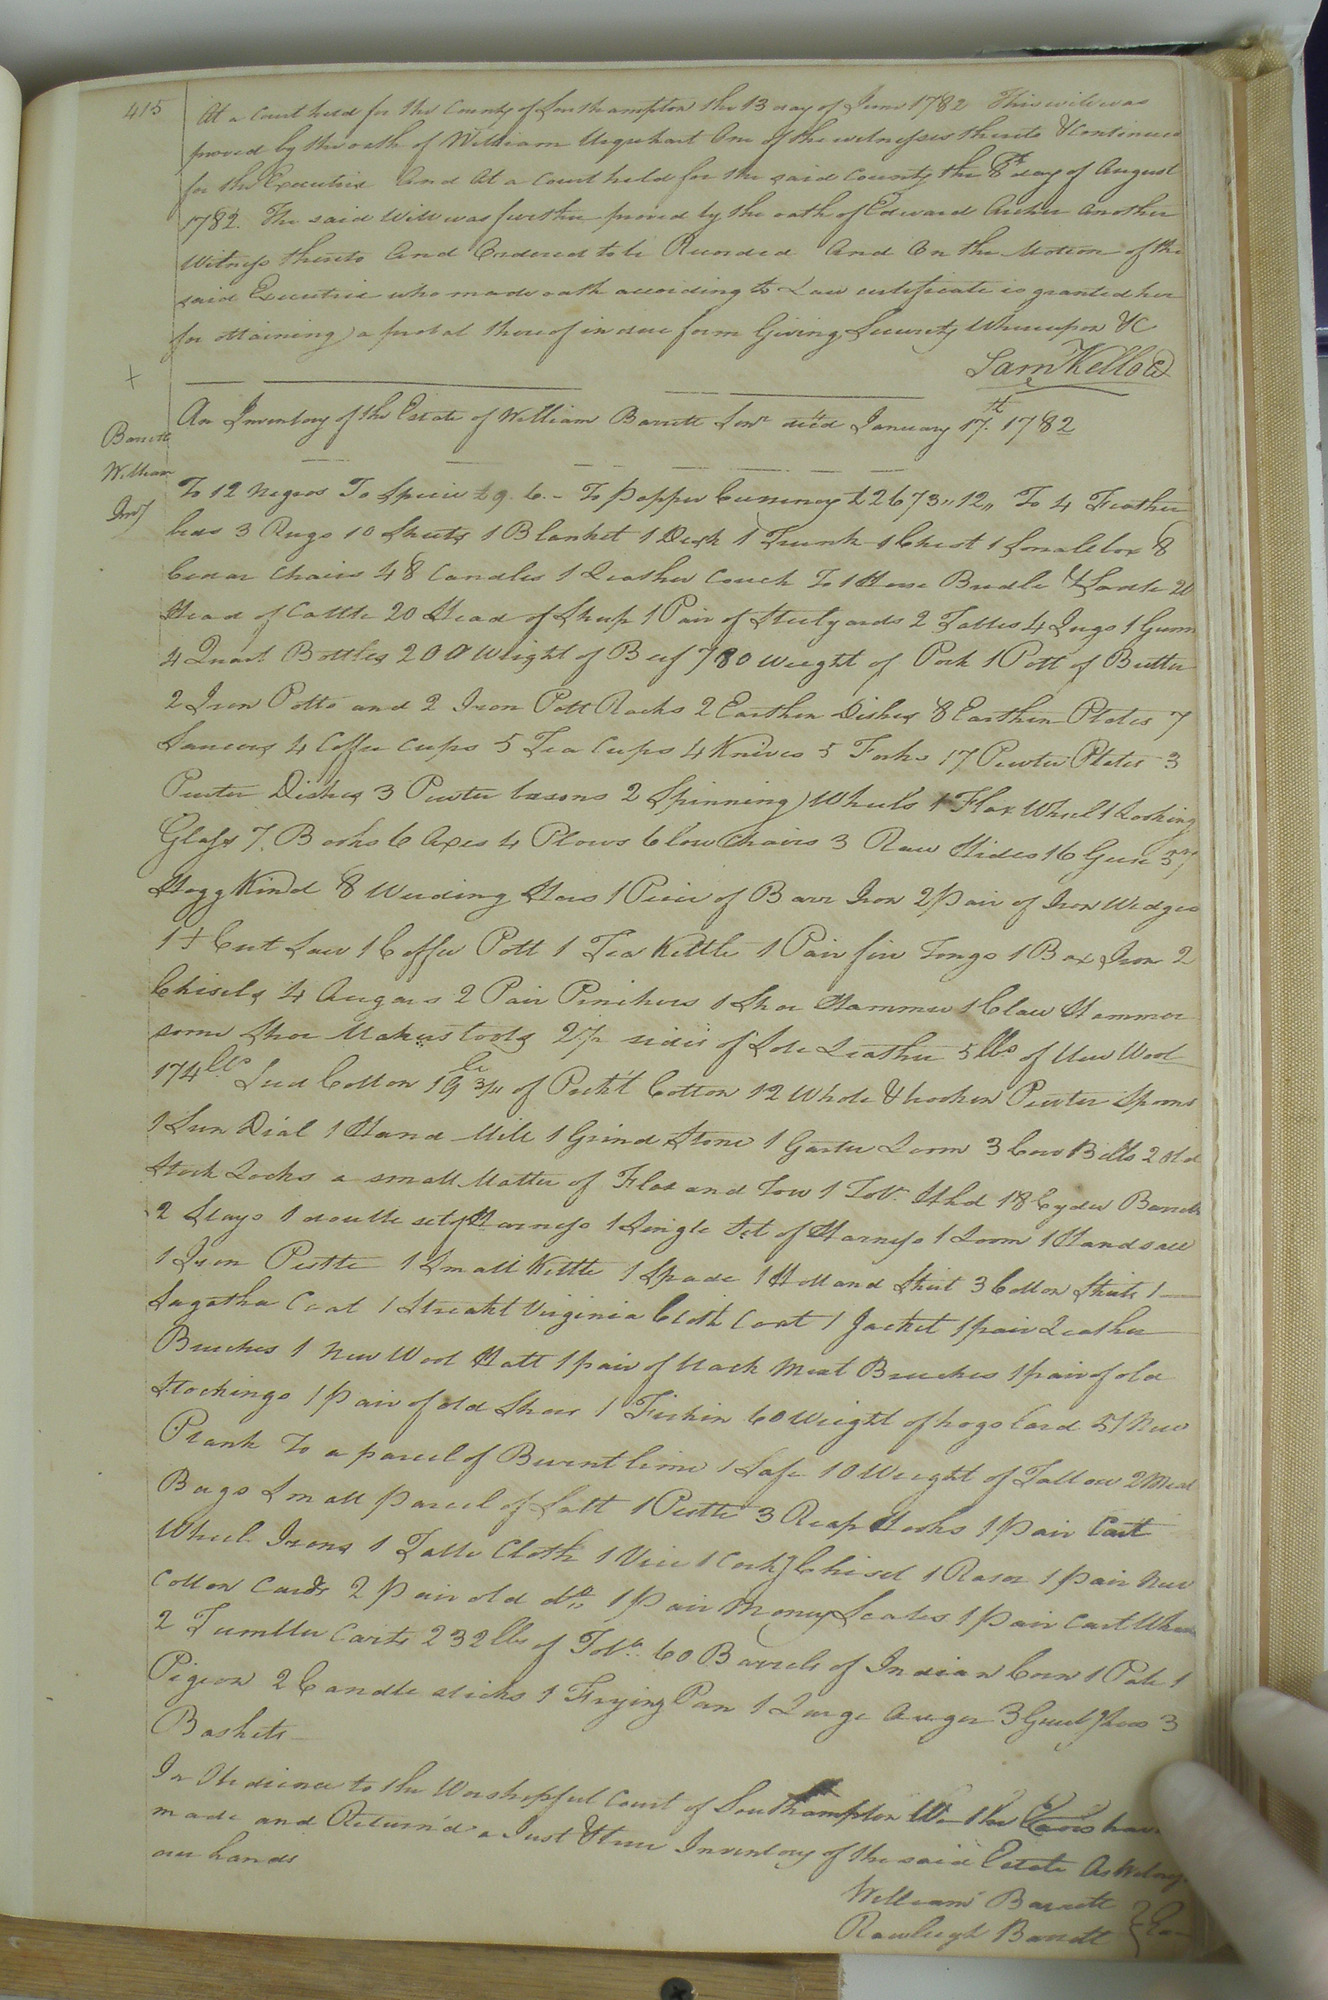 415
At a Court held for the County of Southampton the 13 day of June 1782 This will was
proved by the oath of William Urquhart One of the witnesses thereto & Continued
for the Executrix And At a Court held for the said County the 8th day of August
1782. The said Will was further proved by the oath of Edward Archer Another
Witness thereto And Ordered to be Recorded And On the Motion of the
said Executrix who made oath according to Law certificate is granted her
for obtaining a probat thereof in due form Giving Security Whereupon &C
Sam Kello CC
+
An Inventory of the Estate of William Barrett Senr died January 17th. 1782
Barrett
William
Invy
To 12 Negros To Specie £ 9. 6. - To Papper Currency £ 2673,, 12,, To 4 Feather
beds 3 Rugs 10 Sheets 1 Blanket 1 Desk 1 Trunk 1 Chest 1 Small box 8
Cedar Chairs 48 Candles 1 Leather Couch To 1 Horse Bridle & Sadle 20
Head of Cattle 20 Head of Sheep 1 Pair of Steelyards 2 Tables 4 Jugs 1 Gunn
4 Quart Bottles 200 Weight of Beef 780 Weight of Pork 1 Pott of Butter
2 Iron Potts and 2 Iron Pott Racks 2 Earthen Dishes 8 Earthen Plates 7
Saucers 4 Coffee Cups 5 Tea Cups 4 Knives 5 Forks 17 Pewter Plates 3
Pewter Dishes 3 Pewter basons 2 Spinning Wheels 1 Flax Wheel 1 Looking
Glass 7 Books 6 Axes 4 Plows 6 low Chairs 3 Raw Hides 16 Geese
Hogg Kind 8 Weeding Hoes 1 Piece of Barr Iron 2 Pair of Iron Wedges
1 + Cut Saw 1 Coffee Pott 1 Tea Kettle 1 Pair fire Tongs 1 Box Iron 2
Chisels 4 Augars 2 Pair Pinchers 1 Shoe Hammer 1 Claw Hammer
some Shoe Makers tools 2 sides of Sole Leather 5 lbs of New Wool
174 lbs Seed Cotton 19 3/4 lb of Pick't Cotton 12 Whole & broken Pewter Spoons
1 Sun Dial 1 Hand Mill 1 Grind Stone 1 Garter Loom 3 Cow Bells 2 Old
Stock Locks a small Matter of Flax and Tow 1 Tob. Hhd 18 Cyder Barrels
2 Slays 1 double sett Harness 1 Single Set of Harness 1 Loom 1 Handsaw
1 Iron Pestle 1 Small Kettle 1 Spade 1 Holland Shirt 3 Cotton Shirts 1
Sagatha Coat 1 Streaked Virginia Cloth Coat 1 Jacket 1 pair Leather
Breeches 1 New Wool Hatt 1 pair of black Breeches 1 pair of old
Stockings 1 Pair of old Shoes 1 Firkin 60 Weight of hogs lard 51 New
Plank To a parcel of Burnt lime 1 Safe 10 Weight of Tallow 2 Meal
Bags Small Parcel of Salt 1 Pestle 3 Reap Hooks 1 pair Cart
Wheel Irons 1 Table Cloth 1 Vice 1 Chisel 1 Rasor 1 pair New
Cotton Cards 2 Pair old do. 1 Pair Money Scales 1 Pair Cart Wheels
2 Tumbler Carts 232 lbs of Tob. 60 Barrels of Indian Corn 1 Pale 1
Pigeon 2 Candle sticks 1 Frying Pan 1 Large Auger 3 3
Baskets
In Obedience to the Worshipfull Court of Southampton We the have
made and Return'd a Just & true Inventory of the said Estate As
our hands
William Barrett
Rawleigh Barrett